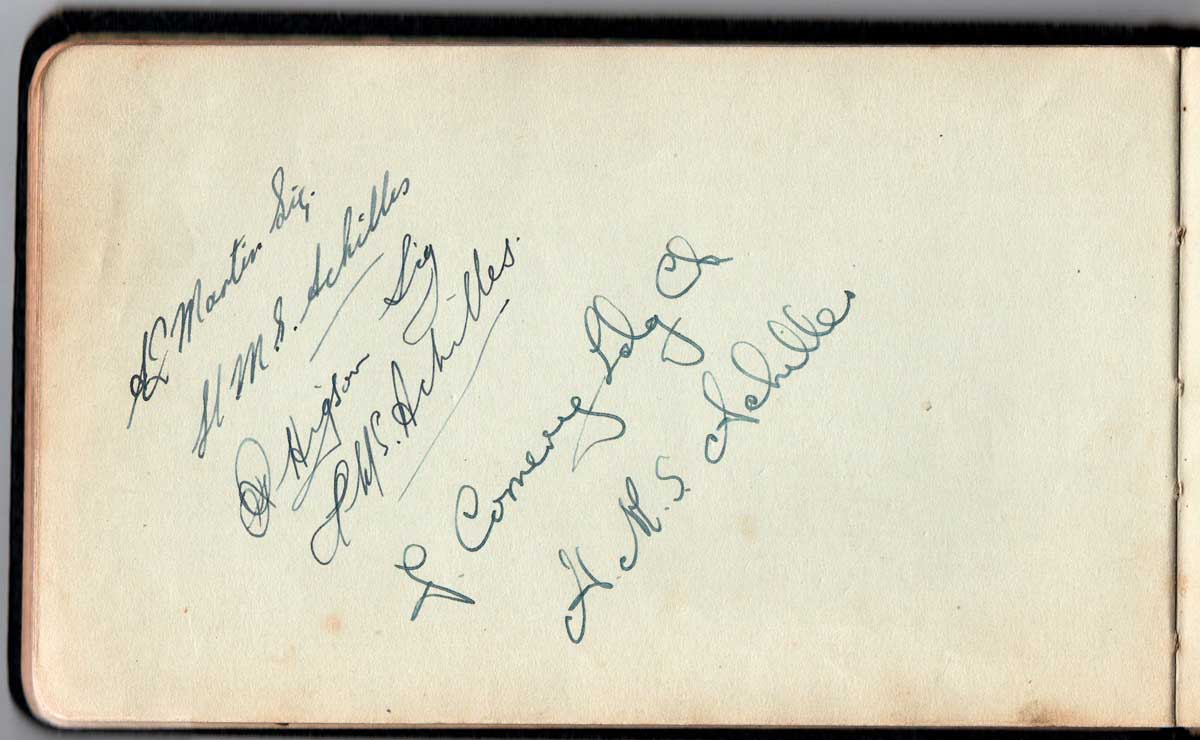 Martin Sig.
H M.S. Achilles
Higson Sig
HMS. Achilles.
Ldg
H.M.S Achilles